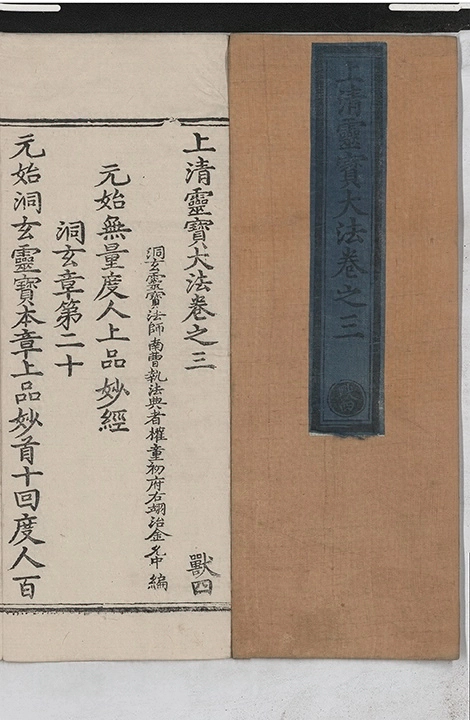 上清靈寶大法卷之三
上清靈寶大法卷之三 獸四
洞玄靈寶法師南曹執法典者權童初府右翊治金允中編
元始無量度人上品妙經
洞玄章第二十
元始洞玄靈寶本章上品妙首十回度人百